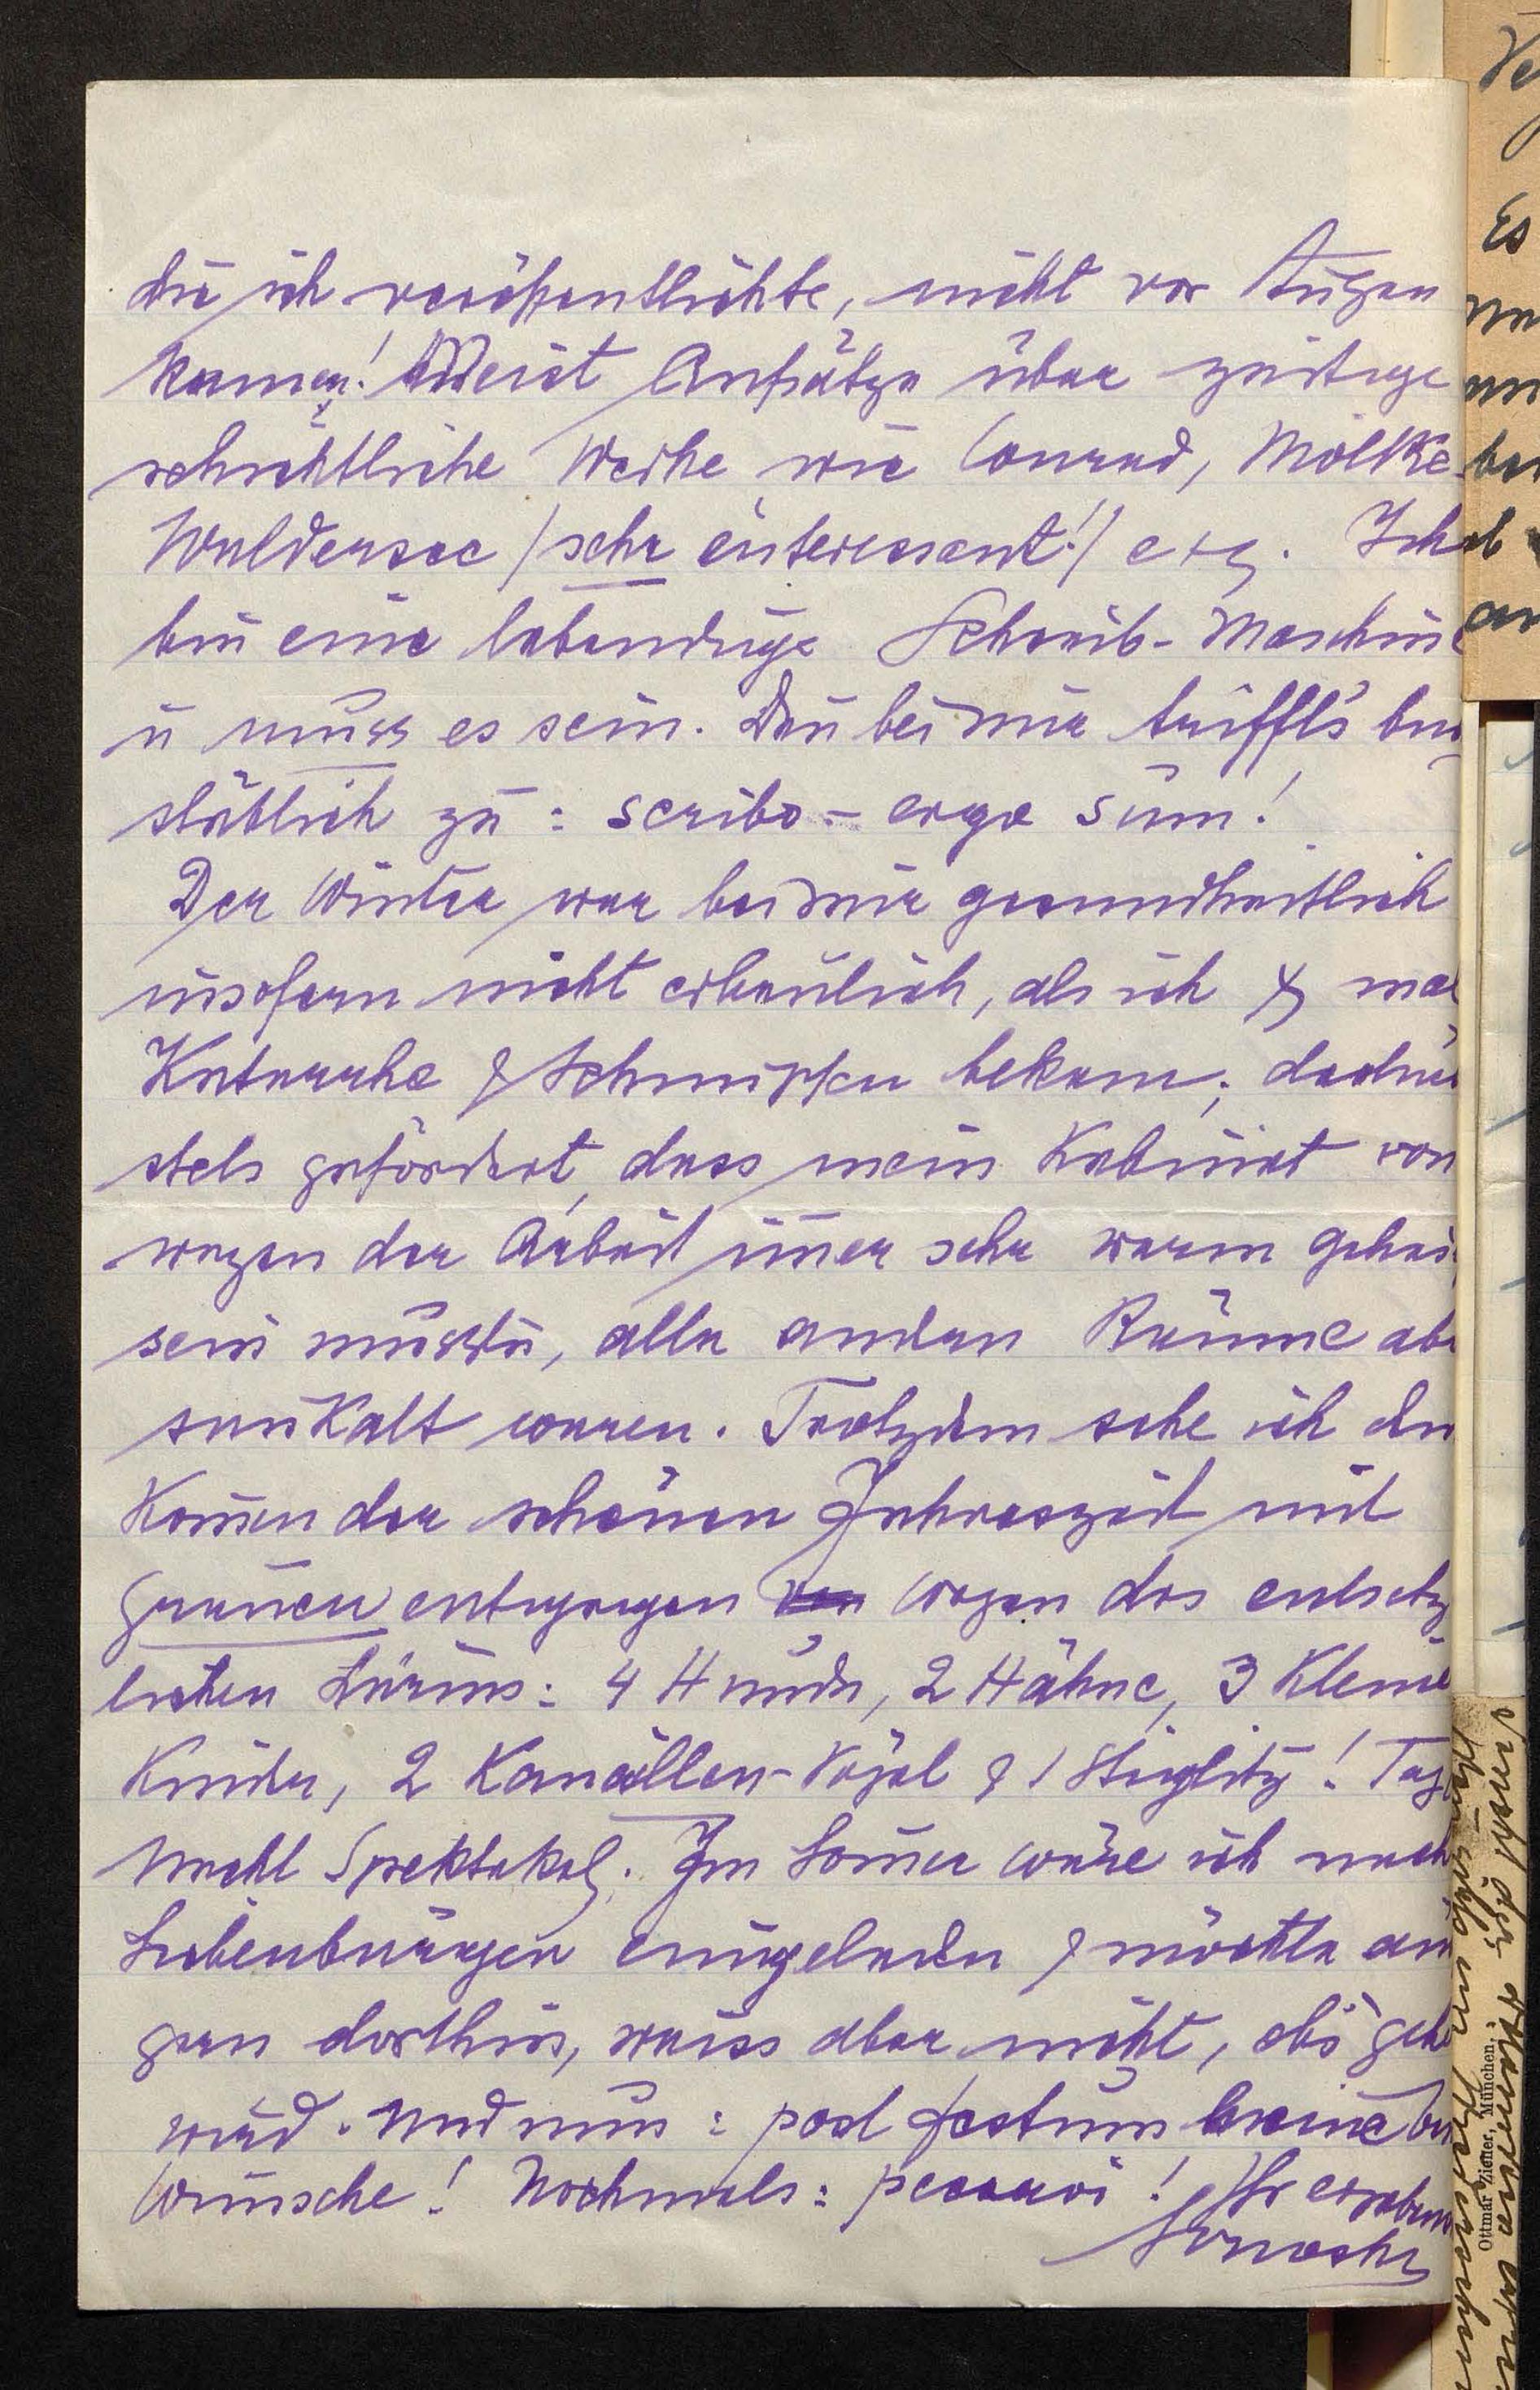 die ich veröffentlichte, nicht vor Augen
kamen! Meist Aufsätze über zeitge
schichtliche Werke wie Conrad, Moltke
Waldersee /sehr interessant!/ etz. Ich
bin eine lebendige Schreib-Maschine
u muss es sein. Deñ bei mir trifft's buch
stäblich zu: scribo - ergo sum!
Der Winter war bei mir gesundheitlich
insofern nicht erbaulich, als ich mal
Katarrhe & Schnupfen bekam; dadurch
stets gefördert, dass mein Kabinet von
wegen der Arbeit im̄er sehr warm geheiz
sein musste, alle andern Räume abe
saukalt waren. Trotzdem sehe ich dem
Kom̄en der schönen Jahreszeit mit
Grauen entgegen wegen des entsetz
lichen Lärms: 4 Hunde, 2 Hähne, 3 kleine
Kinder, 2 Kanaillen-Vögel & 1 Stieglitz! Tag
Nacht Spektakel. Im Som̄er wäre ich nach
Siebenbürgen eingeladen & möchte auch
gern dorthin, weiss aber nicht, ob's gehe
wird. Und nun: post festum
Wünsche! Nochmals: peccavi! Ihr ergeben
Ottmar Zieher, München.